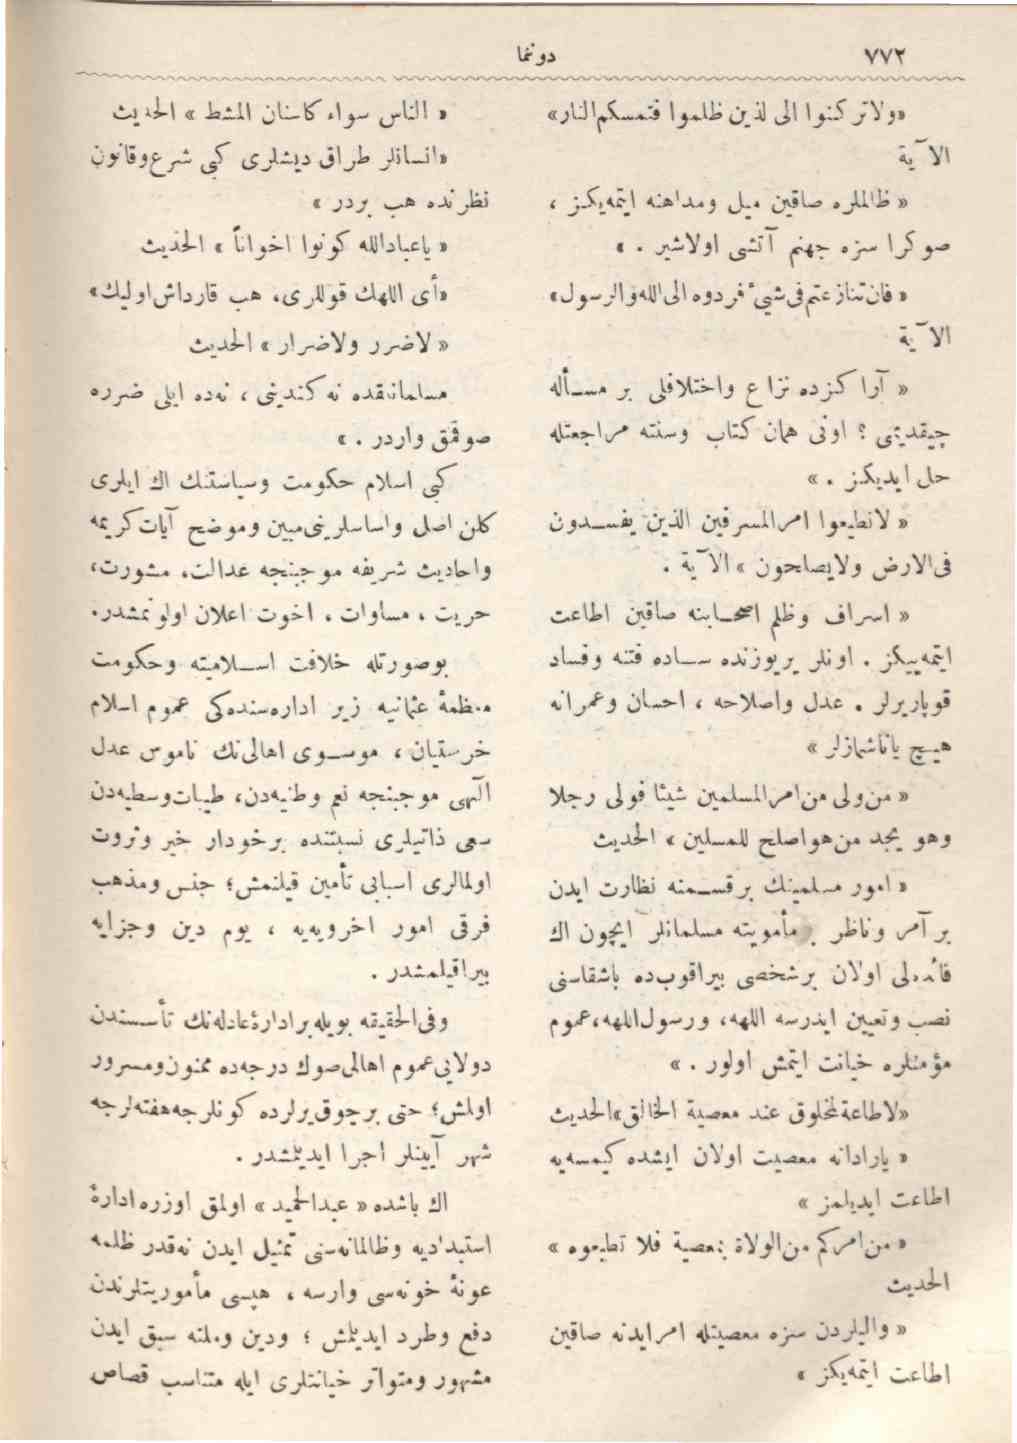 ٧٧٢
دونما
«ولاتركنوا الى لذين ظلموا فتمسكم النار»
الآية
« ظالملره صاقين ميل ومداهنه ايتمه‌يكز ،
صوكرا سزه جهنم آتشى اولاشير . »
« فان تنازعتم فى شيئ فردوه الى الله والرسول»
الآية
« آراكزده نزاع واختلافلى بر مسأله
چيقديمى ؟ اونى همان كتاب وسنته مراجعتله
حل ايديكز . »
« لاتطيعوا امر المسرفين الذين يفسدون
فى الارض ولايصلحون » الآية .
« اسراف وظلم اصحابنه صاقين اطاعت
ايتمه‌ييكز . اونلر يريوزنده ساده فتنه وفساد
قوپاريرلر . عدل واصلاحه ، احسان وعمرانه
هيچ ياناشمازلر »
« من ولى من امر المسلمين شيئا فولى رجلا
وهو يجد من هو اصلح للمسلين » الحديث
« امور مسلمينك برقسمنه نظارت ايدن
بر آمر وناظر بر مأموريته مسلمانلر ايچون اك
فائده‌لى اولان برشخصى بيراقوب‌ده باشقاسنى
نصب وتعيين ايدرسه اللهه، ورسول‌اللهه،عموم
مؤمنلره خيانت ايتمش اولور . »
«لاطاعة لمخلوق عند معصية الخالق»الحديث
« يارادانه معصيت اولان ايشده كيمسه‌يه
اطاعت ايديلمز »
« من امركم من الولاة بمعصية فلا تطيعوه »
الحديث
« واليلردن سزه معصيتله امر ايدنه صاقين
اطاعت ايتمه‌يكز »
« الناس سواء كاسنان المشط » الحديث
«انسانلر طراق ديشلرى كبى شرع وقانون
نظرنده هب بردر »
« ياعبادالله كونوا اخواناً » الحديث
«أى اللهك قوللرى، هب قارداش اوليك»
« لاضرر ولاضرار » الحديث
مسلمانلقده نه كندينى ، نه‌ده ايلى ضرره
صوقمق واردر . »
كبى اسلام حكومت وسياستنك اك ايلرى
كلن اصل واساسلرينى مبين وموضح آيات كريمه
واحاديث شريفه موجبنجه عدالت، مشورت،
حريت ، مساوات ، اخوت اعلان اولونمشدر.
بوصورتله خلافت اسلاميته وحكومت
منظمهٔ عثمانيه زير اداره‌سنده‌كى عموم اسلام
خرستيان ، موسوى اهالى‌نك ناموس عدل
آلهى موجبنجه نعم وطنيه‌دن، طيبات وسطيه‌دن
سعى ذاتيلرى نسبتنده برخودار خير وثروت
اولمالرى اسبابى تأمين قيلنمش؛ جنس ومذهب
فرقى امور اخرويه‌يه ، يوم دين وجزايه
بيراقيلمشدر .
وفى الحقيقه بويله بر ادارهٔ عادله‌نك تأسسندن
دولايى عموم اهالى صوك درجه‌ده ممنون ومسرور
اولمش؛ حتى برچوق يرلرده كونلرجه هفته‌لرجه
شهر آيينلر اجرا ايديلمشدر .
اك باشده « عبدالحميد » اولمق اوزره ادارهٔ
استبداديه وظالمانه‌سنى تمثيل ايدن نه‌قدر ظلمه
عونهٔ خونه‌سى وارسه ، هپسى مأموريتلرندن
دفع وطرد ايديلمش ؛ ودين وملته سبق ايدن
مشهور ومتواتر خيانتلرى ايله متناسب قصاص